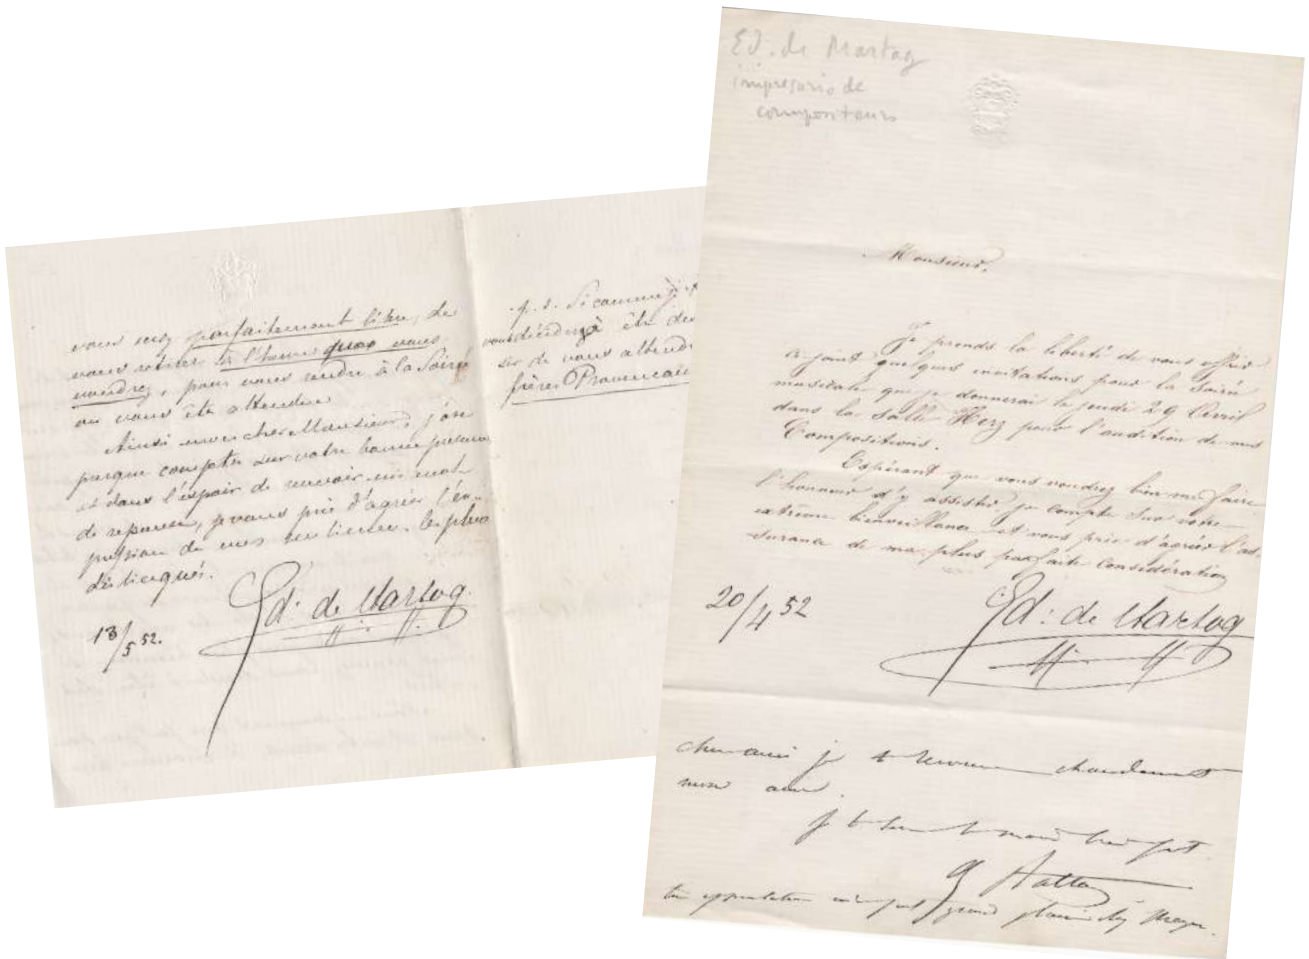 vous serez parfaitement libre, de
vous retirer à l'heure que vous
voudrez, pour vous rendre à la Soirée
où vous êtes attendu
Ainsi mon cher Monsieur, j'ose
presque compter sur votre bonne présence
et dans l'espoir de recevoir un mot
de réponse, je vous prie d'agréer l'ex-
pression de mes sentimens les plus
distingués.
Ed: de Hartog
13/5 52.
p. s. Si comme
vous décidez à être des
sir de vous attendre
frères Provencaux
Ed. de Hartog
impresario de
compositeurs
Monsieur,
Je prends la liberté de vous offrir
ci-joint quelques invitations pour la soirée
musicale que je donnerai le jeudi 29 Avril
dans la Salle Herz pour l'audition de mes
Compositions.
Espérant que vous voudrez bien me faire
l'honneur d'y assister, je compte sur votre
extrême bienveillance et vous prie d'agréer l'as-
surance de ma plus parfaite considération
Ed: de Hartog
20/4 52
cher ami je te recommande chaudement
mon ami.
grand plaisir